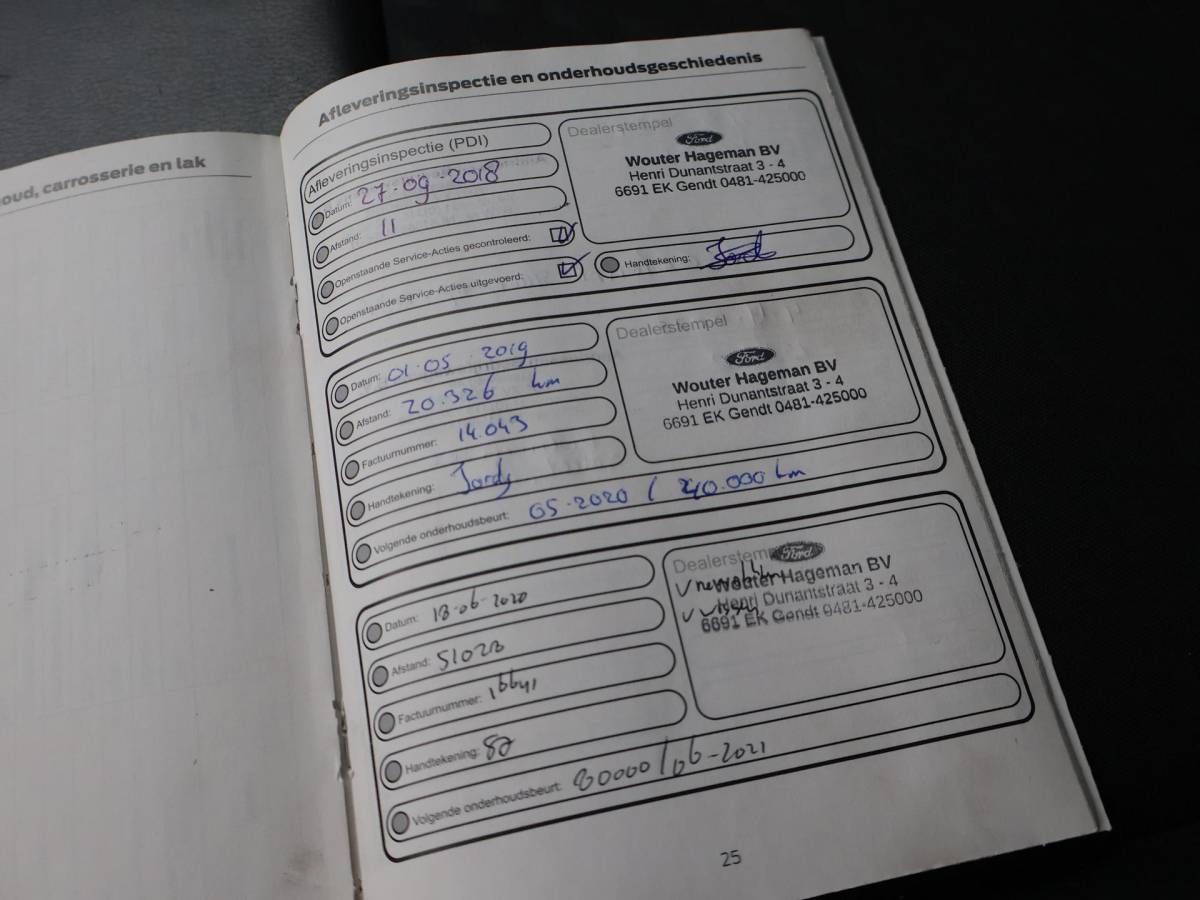 oud, carrosserie en lak
Afleveringsinspectie en onderhoudsgeschiedenis
Afleveringsinspectie (PDI)
Datum: 27-09-2018
Afstand: 11
Openstaande Service-Acties gecontroleerd:
Openstaande Service-Acties uitgevoerd:
Dealerstempel
Ford
Wouter Hageman BV
Henri Dunantstraat 3 - 4
6691 EK Gendt 0481-425000
Handtekening:
Datum: 01-05 2019
Afstand: 20.326 km
Factuurnummer: 14.043
Handtekening: Jordy
Volgende onderhoudsbeurt: 05-2020 / 40.000 km
Dealerstempel
Ford
Wouter Hageman BV
Henri Dunantstraat 3 - 4
6691 EK Gendt 0481-425000
Datum: 18-06-2020
Afstand:
Factuurnummer: 16641
Handtekening:
Volgende onderhoudsbeurt: 80000/06-2021
Dealerstem
Ford
Wouter Hageman BV
Henri Dunantstraat 3 - 4
6691 EK Gendt 0481-425000
25